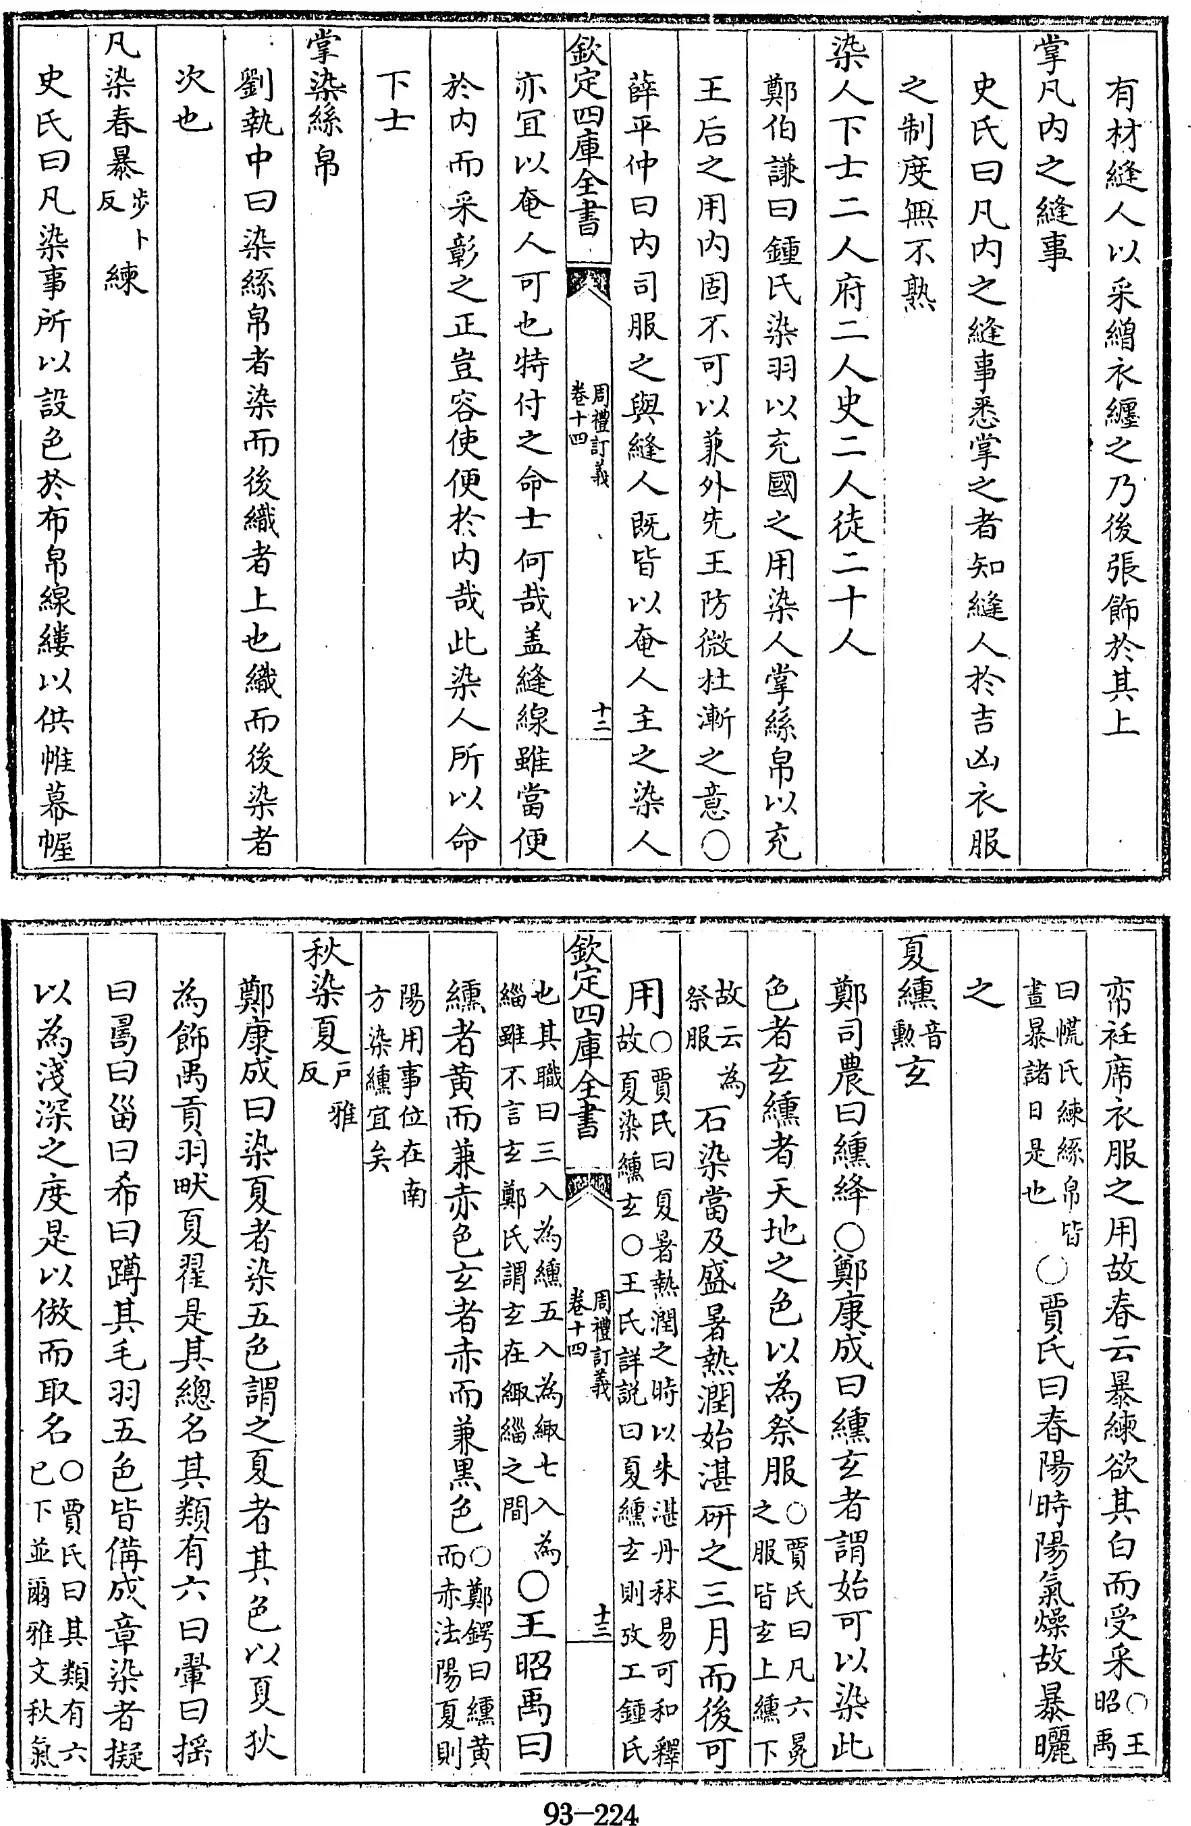 有材縫人以采繒衣纒之乃後張飾於其上
掌凡内之縫事
史氏曰凡内之縫事悉掌之者知縫人於吉凶衣服
之制度無不熟
染人下士二人府二人史二人徒二十人
鄭伯謙曰鍾氏染羽以充國之用染人掌絲帛以充
王后之用内固不可以兼外先王防微杜漸之意〇
薛平仲曰内司服之與縫人既皆以奄人主之染人
欽定四庫全書 周禮訂義 卷十四 十二
亦宜以奄人可也特付之命士何哉盖縫線雖當便
於内而采彰之正豈容使便於内哉此染人所以命
下士
掌染絲帛
劉執中曰染絲帛者染而後織者上也織而後染者
次也
凡染春暴步卜反練
史氏曰凡染事所以設色於布帛線縷以供帷幕幄
帟衽席衣服之用故春云暴練欲其白而受采〇王昭禹
曰㡛氏練絲帛皆晝暴諸日是也〇賈氏曰春陽時陽氣燥故暴曬
之
夏纁音勲玄
鄭司農曰纁絳〇鄭康成曰纁玄者謂始可以染此
色者玄纁者天地之色以為祭服〇賈氏曰凡六冕之服皆玄上纁下
故云為祭服石染當及盛暑熱潤始湛研之三月而後可
用〇賈氏曰夏暑熱潤之時以朱湛丹秫易可和釋故夏染纁玄〇王氏詳説曰夏纁玄則攷工鍾氏
欽定四庫全書 周禮訂義 卷十四 十三
也其職曰三入為纁五入為緅七入為緇雖不言玄鄭氏謂玄在緅緇之間〇王昭禹曰
纁者黄而兼赤色玄者赤而兼黒色〇鄭鍔曰纁黄而赤法陽夏則
陽用事位在南方染纁宜矣
秋染夏戸雅反
鄭康成曰染夏者染五色謂之夏者其色以夏狄
為飾禹貢羽畎夏翟是其總名其類有六曰翬曰揺
曰𢏚曰甾曰希曰蹲其毛羽五色皆備成章染者擬
以為淺深之度是以倣而取名〇賈氏曰其類有六已下並爾雅文秋氣
93-224